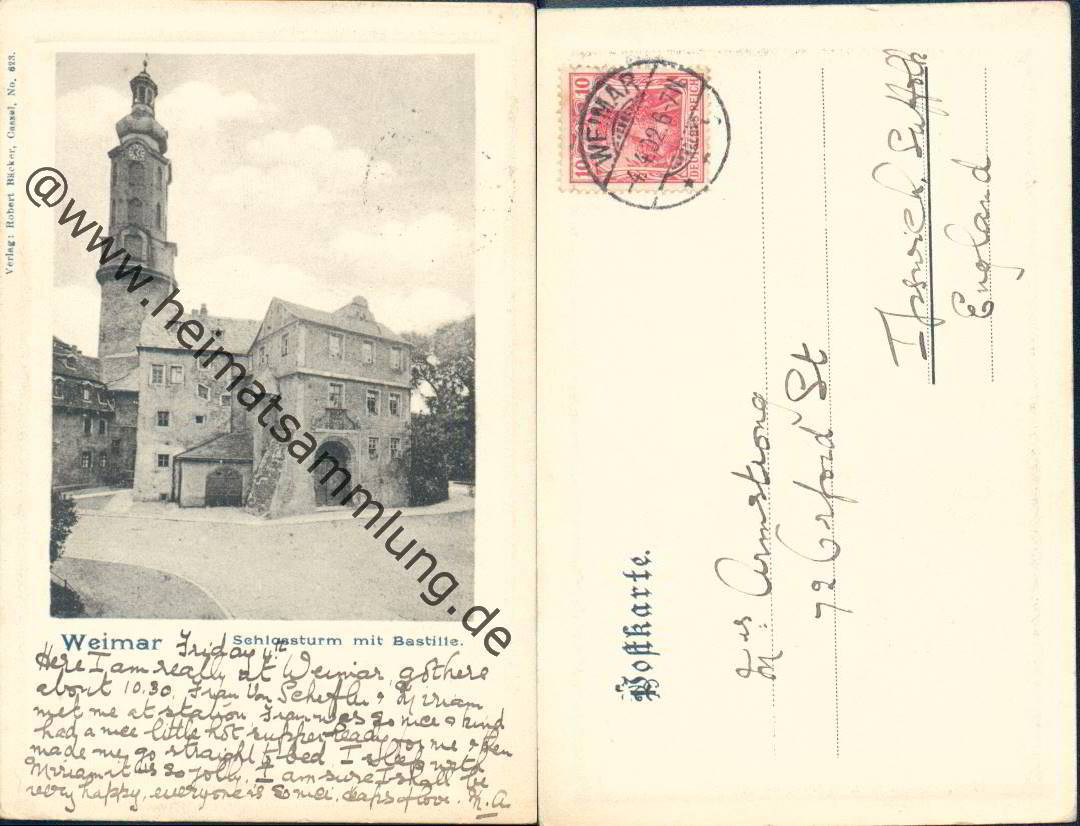 Verlag: Robert Bäcker, Cassel, No. 623.
@www.heimatsammlung.de
Weimar
Schlossturm mit Bastille.
Friday 4th
Here I am really at Weimar, got here
about 10.30, Frau Von & Miriam
met me at station, Frau was so nice & kind
had a nice little hot supper ready for me & then
made me go straight to bed. I sleep with
Miriam it is so jolly. I am sure I shall be
very happy, everyone is so nice, heaps of love. M.A
10
10
DEUTSCHES REICH
WEIMAR
4.4.02.6-7N.
Postkarte.
Mrs Armstrong
72 Orford St
Ipswich, Suffolk
England